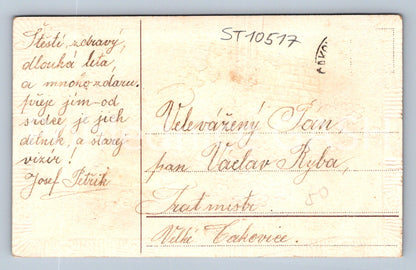 Štěstí, zdravý,
dlouhá léta,
a mnoho zdaru.
přeje jim od
srdce je jich
dělník, a starej
vizír!
Josef Petřík
ST10517
Velevážený Pán,
pan Václav Ryba,
Velké Čakovice.
50